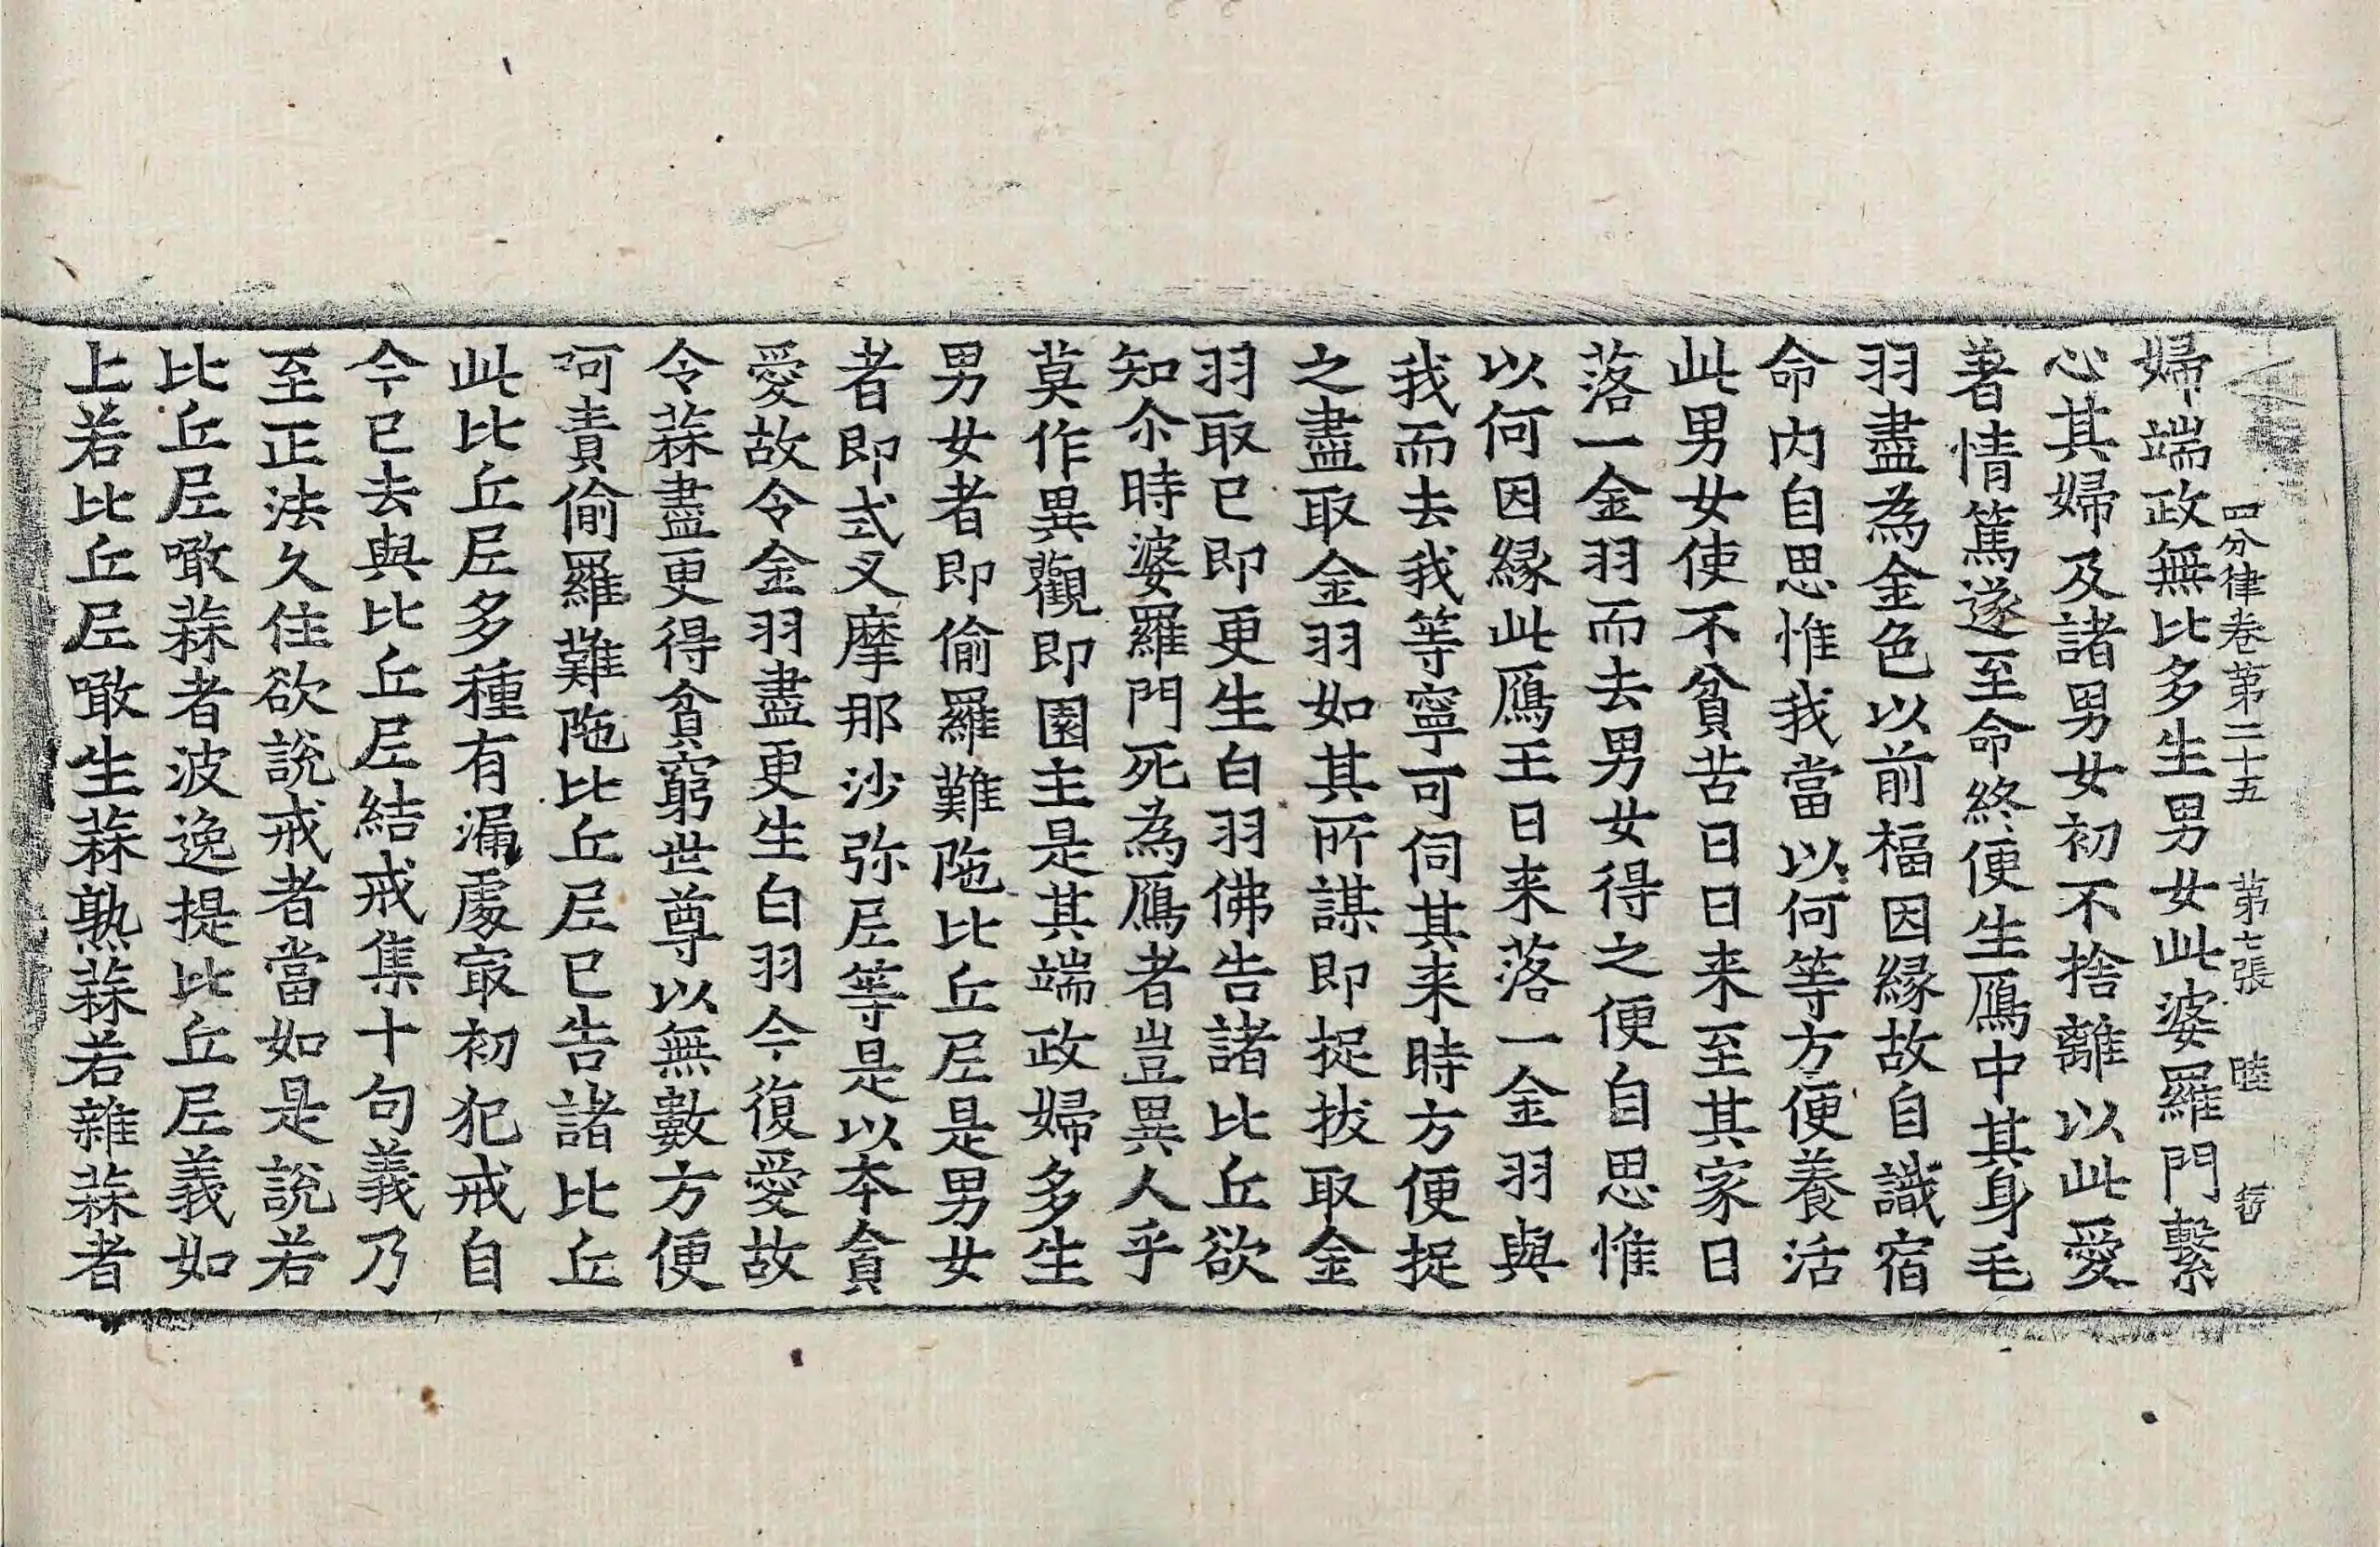 四分律卷第二十五 第七張 睦
婦端政無比多生男女此婆羅門繫
心其婦及諸男女初不捨離以此愛
著情篤遂至命終便生鴈中其身毛
羽盡為金色以前福因緣故自識宿
命内自思惟我當以何等方便養活
此男女使不貧苦日日来至其家日
落一金羽而去男女得之便自思惟
以何因緣此鴈王日来落一金羽與
我而去我等寧可伺其来時方便捉
之盡取金羽如其所謀即捉拔取金
羽取已即更生白羽佛告諸比丘欲
知尒時婆羅門死為鴈者豈異人乎
莫作異觀即園主是其端政婦多生
男女者即偷羅難陁比丘尼是男女
者即式叉摩那沙弥尼等是以本貪
愛故令金羽盡更生白羽今復愛故
令蒜盡更得貧窮世尊以無數方便
呵責偷羅難陁比丘尼已告諸比丘
此比丘尼多種有漏處㝡初犯戒自
今已去與比丘尼結戒集十句義乃
至正法久住欲說戒者當如是說若
比丘尼噉蒜者波逸提比丘尼義如
上若比丘尼噉生蒜熟蒜若雜蒜者